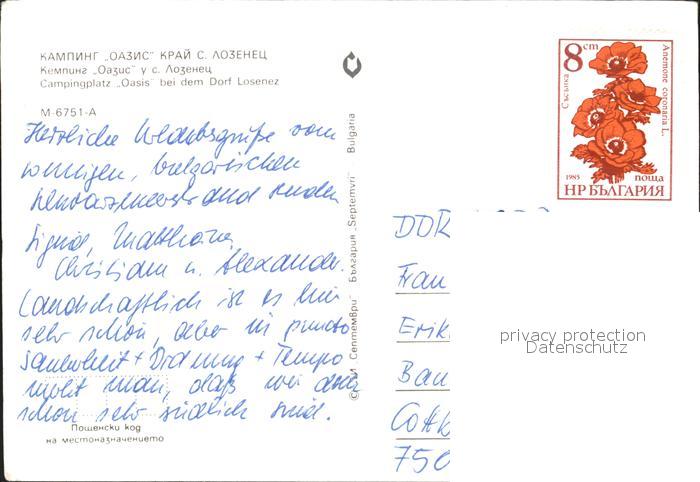 КАМПИНГ „ОАЗИС" КРАЙ С. ЛОЗЕНЕЦ
Кемпинг „Оазис" у с. Лозенец
Campingplatz „Oasis" bei dem Dorf Losenez
М-6751-А
Herzliche Urlaubsgrüße vom
sonnigen, bulgarischen
Schwarzmeerstrand senden
Sigrid, Matthias,
Christiam u. Alexander.
Landschaftlich ist es hier
sehr schön, aber in puncto
Sauberkeit + Ordnung + Tempo
merkt man, daß wir doch
schon sehr südlich sind.
Пощенски код
на местоназначението
ДИ „Септември" България „Septemvri" Bulgaria
8 ст
Съсънка
Anemone coronaria L.
1985
поща
НР БЪЛГАРИЯ
DDR
Frau
Erik
Bau
Cottb
750
privacy protection
Datenschutz